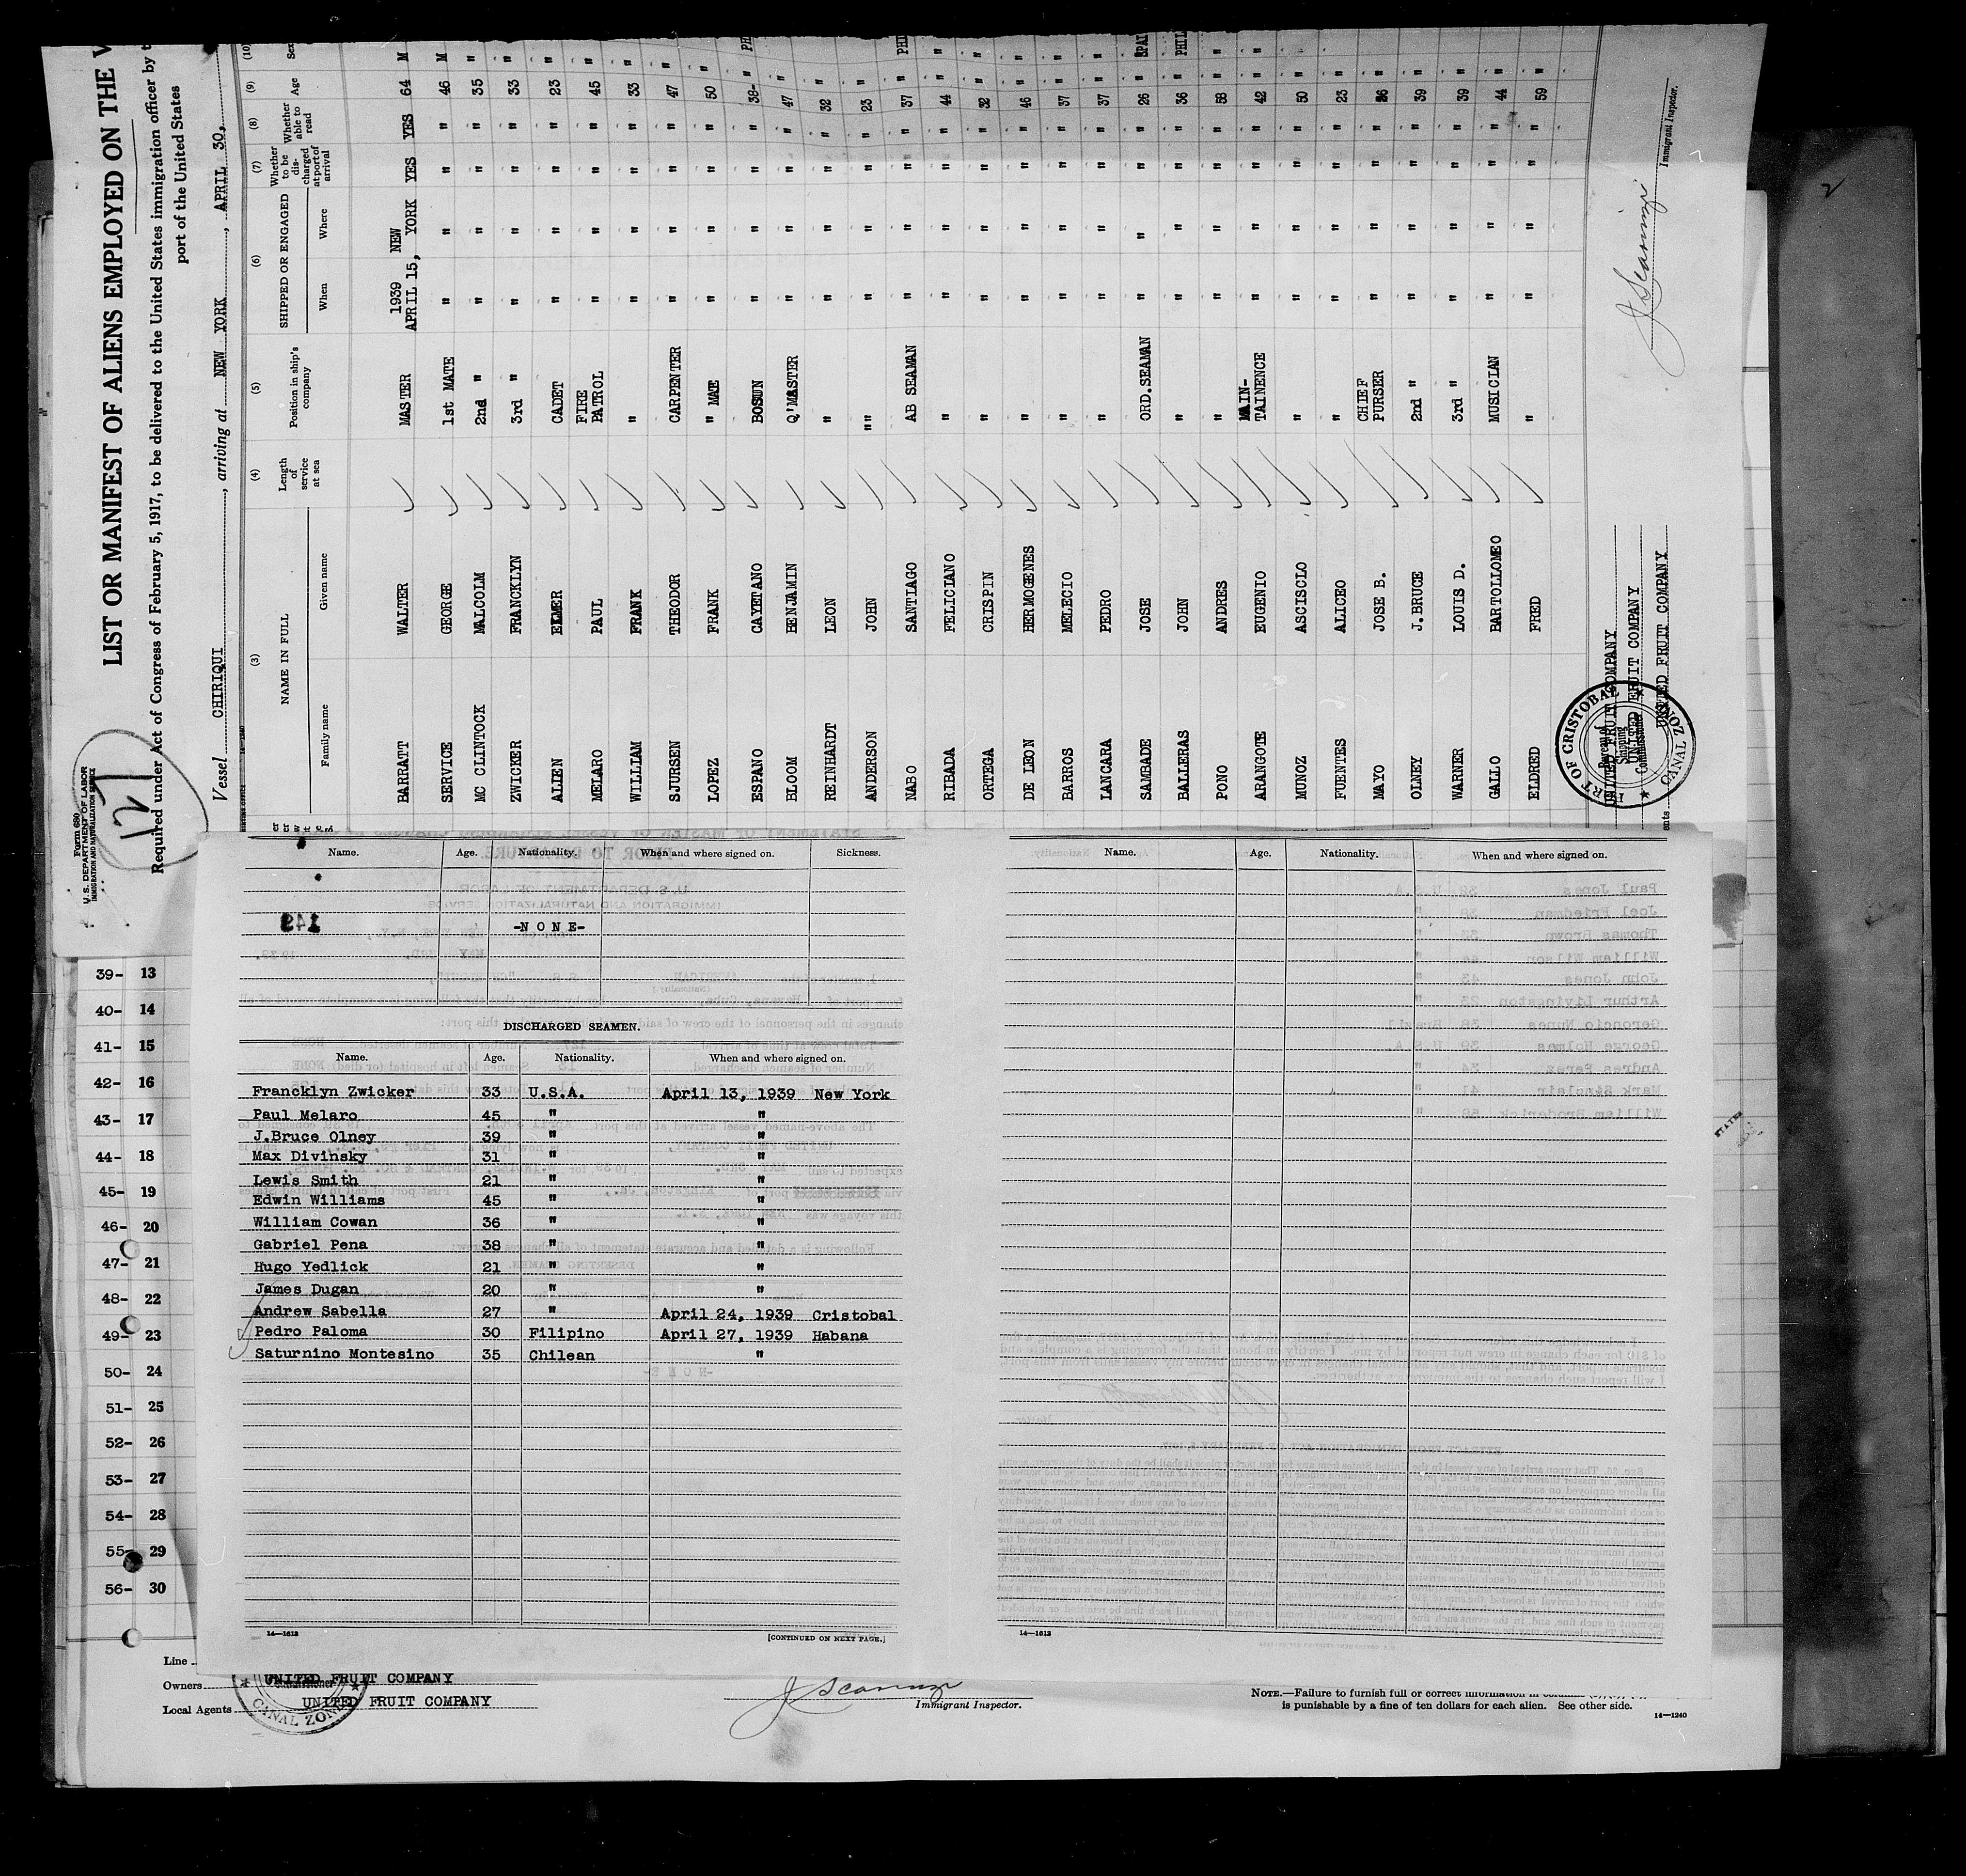 Form 680
U. S. DEPARTMENT OF LABOR
IMMIGRATION AND NATURALIZATION SERVICE
127
LIST OR MANIFEST OF ALIENS EMPLOYED ON THE V
Required under Act of Congress of February 5, 1917, to be delivered to the United States immigration officer by t
port of the United States
Vessel CHIRIQUI , arriving at NEW YORK , APRIL 30,
(3) (4) (5) (6) (7) (8) (9) (10)
NAME IN FULL Length of service at sea Position in ship's company SHIPPED OR ENGAGED Whether to be discharged at port of arrival Whether able to read Age Sex
Family name Given name When Where
BARRATT WALTER MASTER 1939 APRIL 15, NEW YORK YES YES 64 M
SERVICE GEORGE 1st MATE " " " " 46 M
MC CLINTOCK MALCOLM 2nd " " " " " 35 "
ZWICKER FRANCKLYN 3rd " " " " " 33 "
ALLEN ELMER CADET " " " " 23 "
MELARO PAUL FIRE PATROL " " " " 45 "
WILLIAM FRANK " " " " " 33 "
SJURSEN THEODOR CARPENTER " " " " 47 "
LOPEZ FRANK " MATE " " " " 50 "
ESPANO CAYETANO BOSUN " " " " 38- " PH
BLOOM BENJAMIN Q'MASTER " " " " 47 "
REINHARDT LEON " " " " " 32 "
ANDERSON JOHN "" " " " " 23 "
NABO SANTIAGO AB SEAMAN " " " " 37 " PHI
RIBADA FELICIANO " " " " " 44 " "
ORTEGA CRISPIN " " " " " 32 " "
DE LEON HERMOGENES " " " " " 46 " "
BARROS MELECIO " " " " " 37 " "
LANGARA PEDRO " " " " " 37 " "
SAMBADE JOSE ORD.SEAMAN " " " " 26 " SPAI
BALLERAS JOHN " " " " " 36 " PHIL
PONO ANDRES " " " " " 58 " "
ARANGOTE EUGENIO MAIN-TAINENCE " " " " 42 " "
MUNOZ ASCISCLO " " " " " 50 "
FUENTES ALICEO " " " " " 23 "
MAYO JOSE B. CHIEF PURSER " " " " 36 "
OLNEY J.BRUCE 2nd " " " " " 39 "
WARNER LOUIS D. 3rd " " " " " 39 "
GALLO BARTOLLOMEO MUSICIAN " " " " 44 "
ELDRED FRED " " " " " 59 "
UNITED FRUIT COMPANY
UNITED FRUIT COMPANY
UNITED FRUIT COMPANY
PORT OF CRISTOBAL
Bureau of Shipping Commissioner
CANAL ZONE
J Scannzi
Immigrant Inspector.
2
Name. Age. Nationality. When and where signed on. Sickness.
149
-N O N E-
DISCHARGED SEAMEN.
Name. Age. Nationality. When and where signed on.
Francklyn Zwicker 33 U.S.A. April 13, 1939 New York
Paul Melaro 45 " "
J.Bruce Olney 39 " "
Max Divinsky 31 " "
Lewis Smith 21 " "
Edwin Williams 45 " "
William Cowan 36 " "
Gabriel Pena 38 " "
Hugo Yedlick 21 " "
James Dugan 20 " "
Andrew Sabella 27 " April 24, 1939 Cristobal
Pedro Paloma 30 Filipino April 27, 1939 Habana
Saturnino Montesino 35 Chilean "
14—1613 [CONTINUED ON NEXT PAGE.]
Name. Age. Nationality. When and where signed on.
14—1613
39- 13
40- 14
41- 15
42- 16
43- 17
44- 18
45- 19
46- 20
47- 21
48- 22
49- 23
50- 24
51- 25
52- 26
53- 27
54- 28
55- 29
56- 30
Line
Owners UNITED FRUIT COMPANY
Local Agents UNITED FRUIT COMPANY
Commissioner
CANAL ZONE
J Scannzi
Immigrant Inspector.
NOTE.—Failure to furnish full or correct information in columns
is punishable by a fine of ten dollars for each alien. See other side.
14—1240